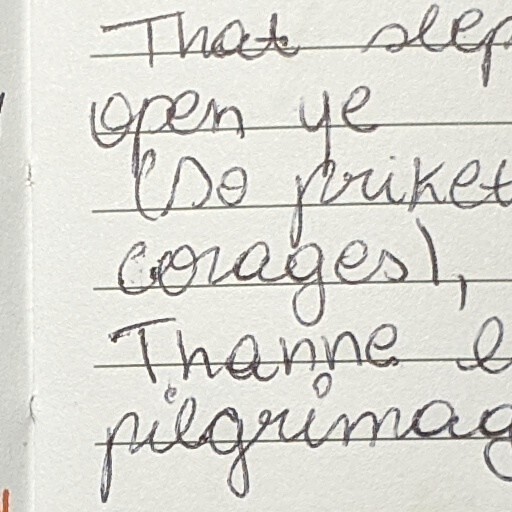 That slep
open ye
(So priket
corages),
Thanne
pilgrimag